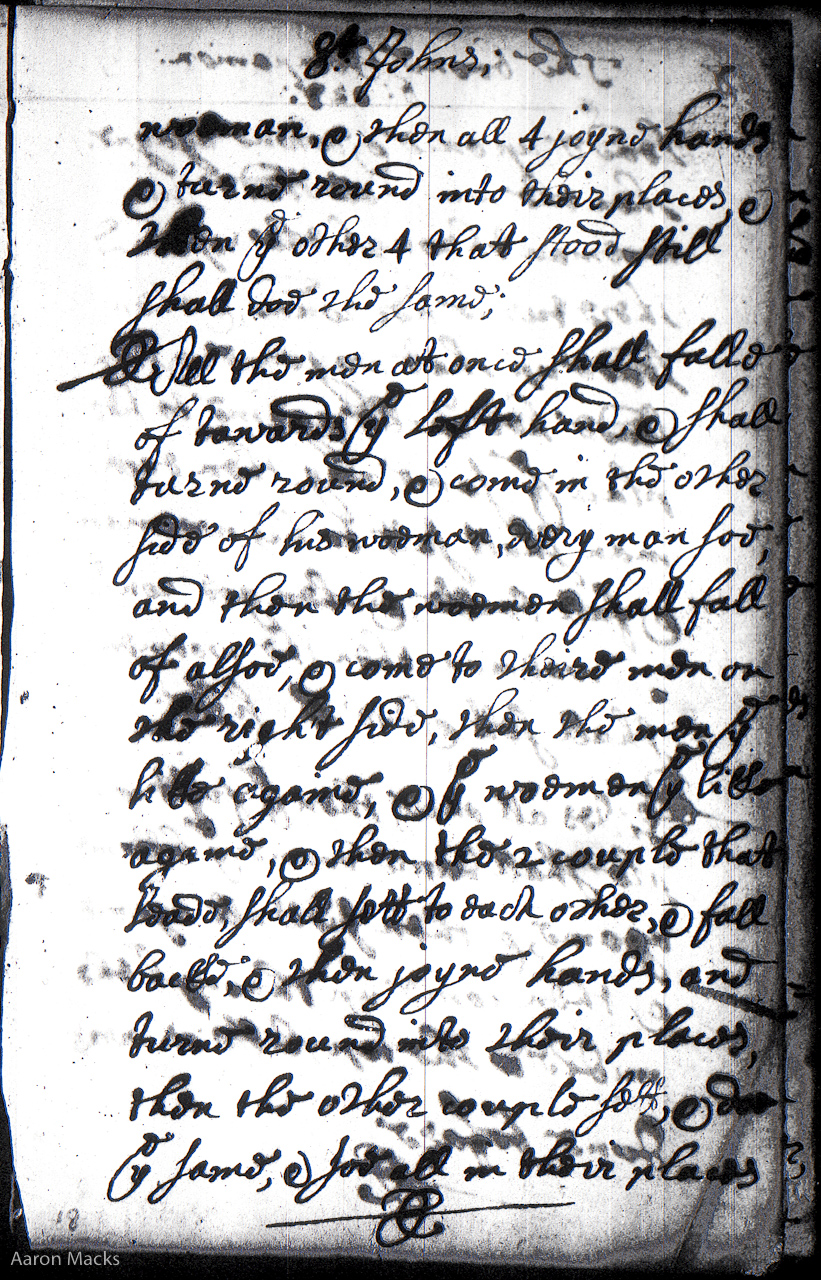 St. Johns;
woeman, & then all 4 joyne hands
& turne round into their places, &
then ye other 4 that stood still
shall doe the same;
All the men at once shall falle
of towards ye left hand, & shall
turne round, & come in the other
side of his woeman, every man soe,
and then the woemen shall fall
of alsoe, & come to theire men on
the right side, then the men ye
like againe, & ye woemen ye like
againe, & then the 2 couple that
leade, shall sett to each other, & fall
backe, & then joyne hands, and
turne round into their places,
then the other couple sett, & doe
ye same, & soe all in their places
18
Aaron Macks